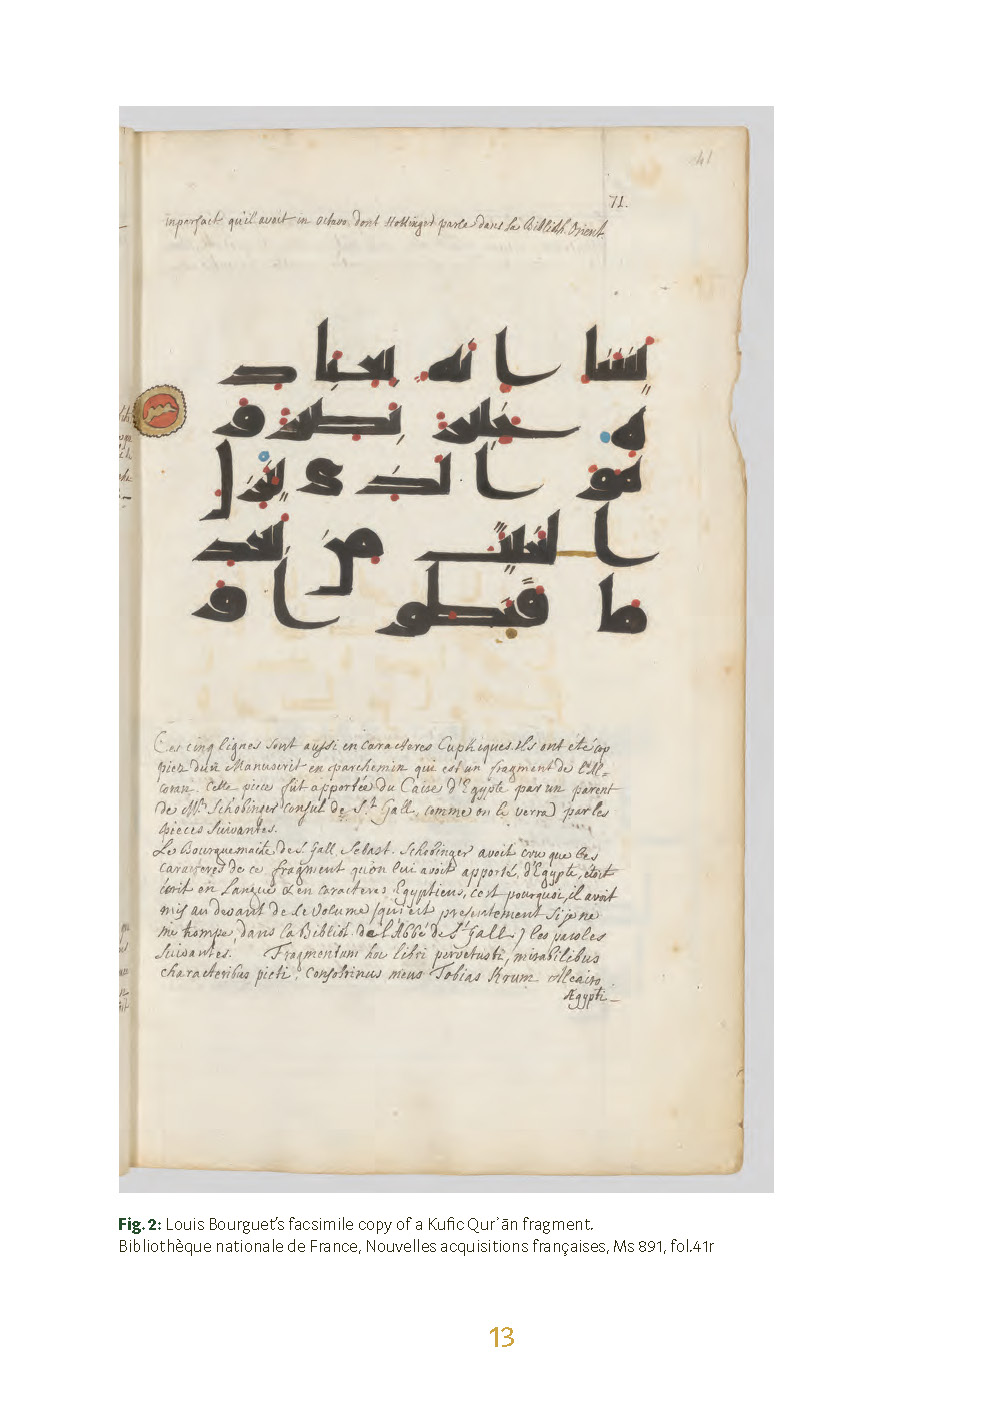 41
71.
inparfait qu'il avoit in octavo dont Hottinger parle dans sa Biblioth. Orient.
يشا انه بعباد
ه خبير بصير و
هو الذى ينزل
الغيث من بعد
ما قنطوا و
Ces cinq lignes sont aussi en caracteres Cuphiques. Ils ont été cop
piez d'un Manuscrit en parchemin qui est un fragment de l'Al=
coran. Cette piece fût apportée du Caire d'Egypte par un parent
de Mr. Schobinger Consul de St. Gall, comme on le verra par les
pieces suivantes.
Le Bourguemaitre de S. Gall Sebast. Schobinger avoit cru que les
caracteres de ce fragment qu'on lui avoit apporté, d'Egypte, étoit
écrit en Langue & en caracteres Egyptiens, c'est pourquoi, il avoit
mis au devant de ce Volume (qui est presentement si je ne
me trompe, dans la Biblioth. de l'Abbé de St. Gall.) les paroles
suivantes. Fragmentum hoc libri pervetusti, mirabilibus
characteribus picti, Consobrinus meus Tobias Krum Alcairo
Ægypti_
Fig. 2: Louis Bourguet's facsimile copy of a Kufic Qurʾān fragment.
Bibliothèque nationale de France, Nouvelles acquisitions françaises, Ms 891, fol.41r
13